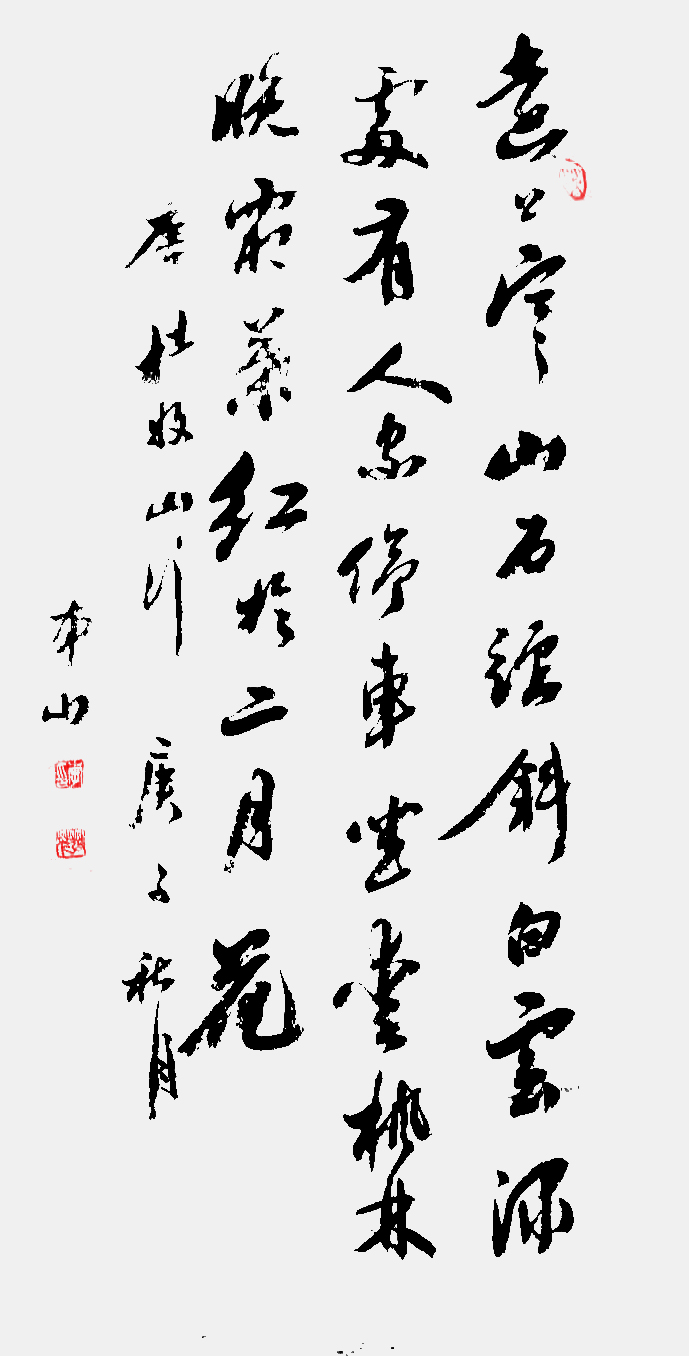 遠上寒山石徑斜白雲深
處有人家停車坐愛桃林
晚霜葉紅於二月花
唐杜牧山行 庚子秋月
本山